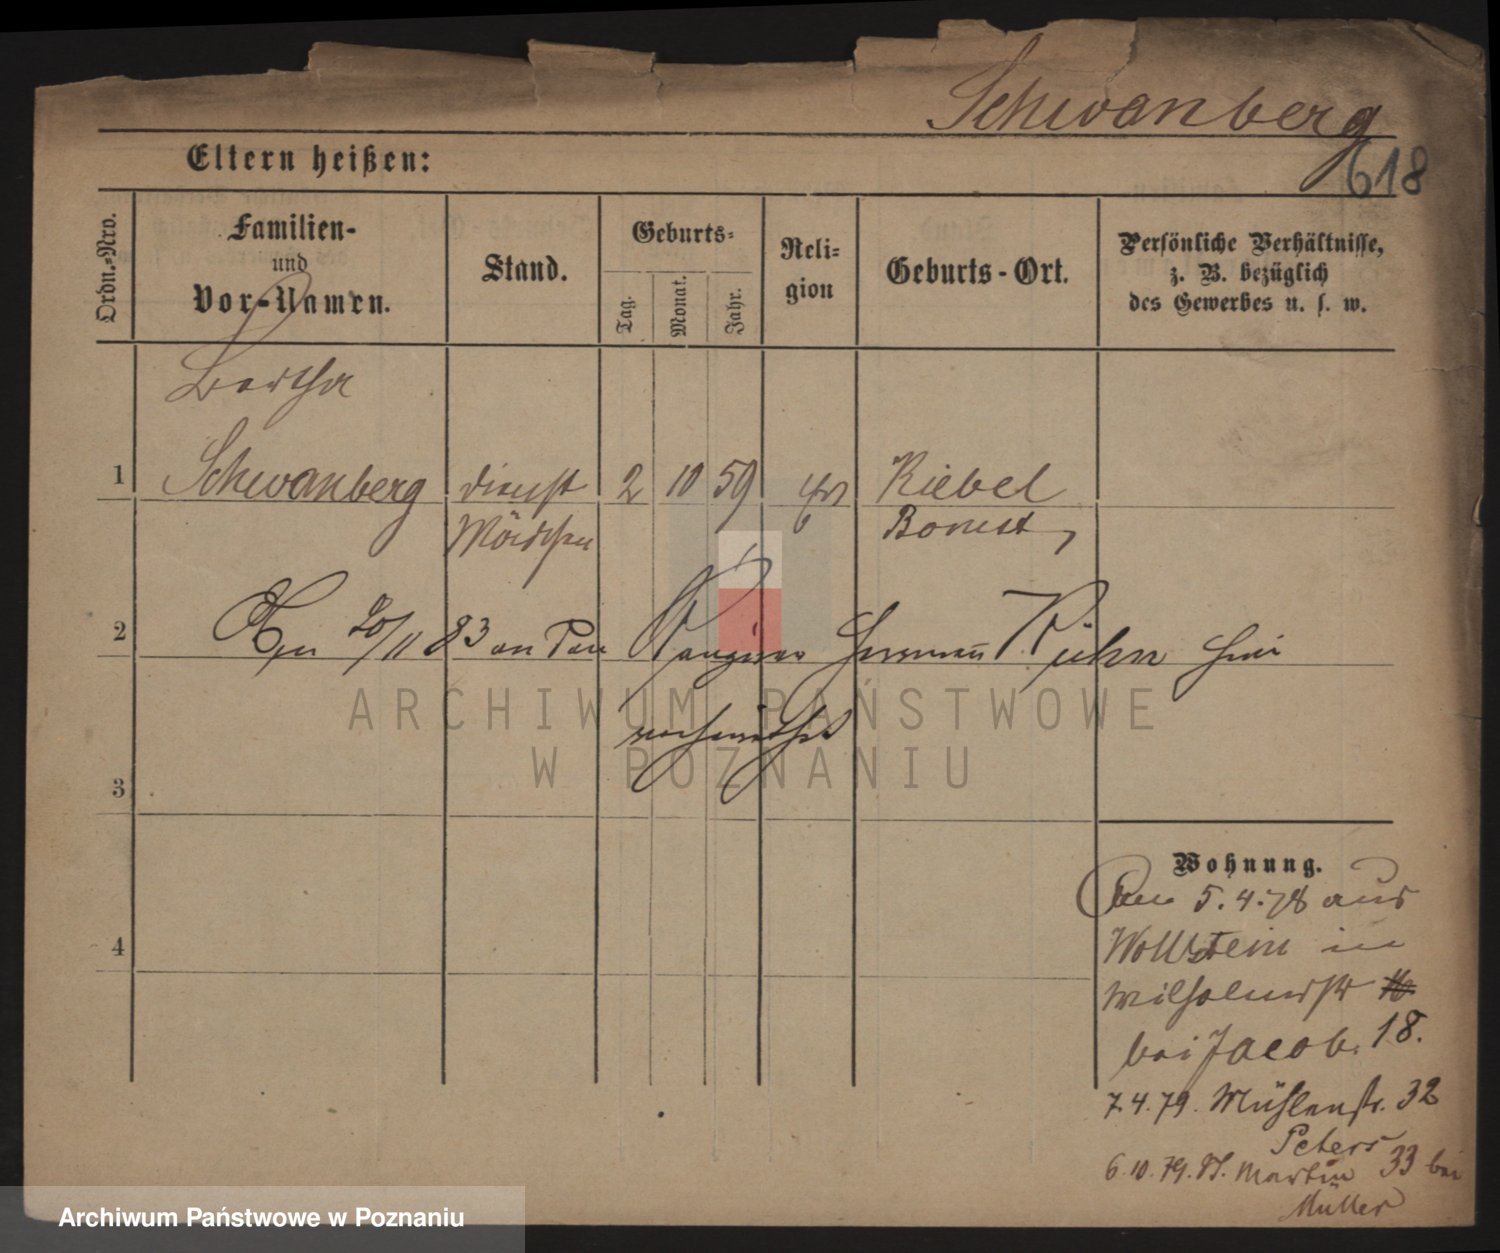 Schwanberg
618
Eltern heißen:
Ordn.-Nro.
Familien-
und
Vor-Namen.
Stand.
Geburts-
Tag.
Monat.
Jahr.
Reli-
gion
Geburts-Ort.
Persönliche Verhältnisse,
z. B. bezüglich
des Gewerbes u. s. w.
Bertha
1 Schwanberg dienst 2 10 59 ev Kiebel
Mädchen Bomst,
2 20/11 83 an Herrmann Kühn hier
verheirathet
ARCHIWUM PAŃSTWOWE
W POZNANIU
3
4
Wohnung.
5.4.78 aus
Wollstein in
Wilhelmstr 16
bei Jacob. 18.
7.4.79. Mühlenstr. 32
Peters
6.10.79. St. Martin 33 bei
Müller
Archiwum Państwowe w Poznaniu